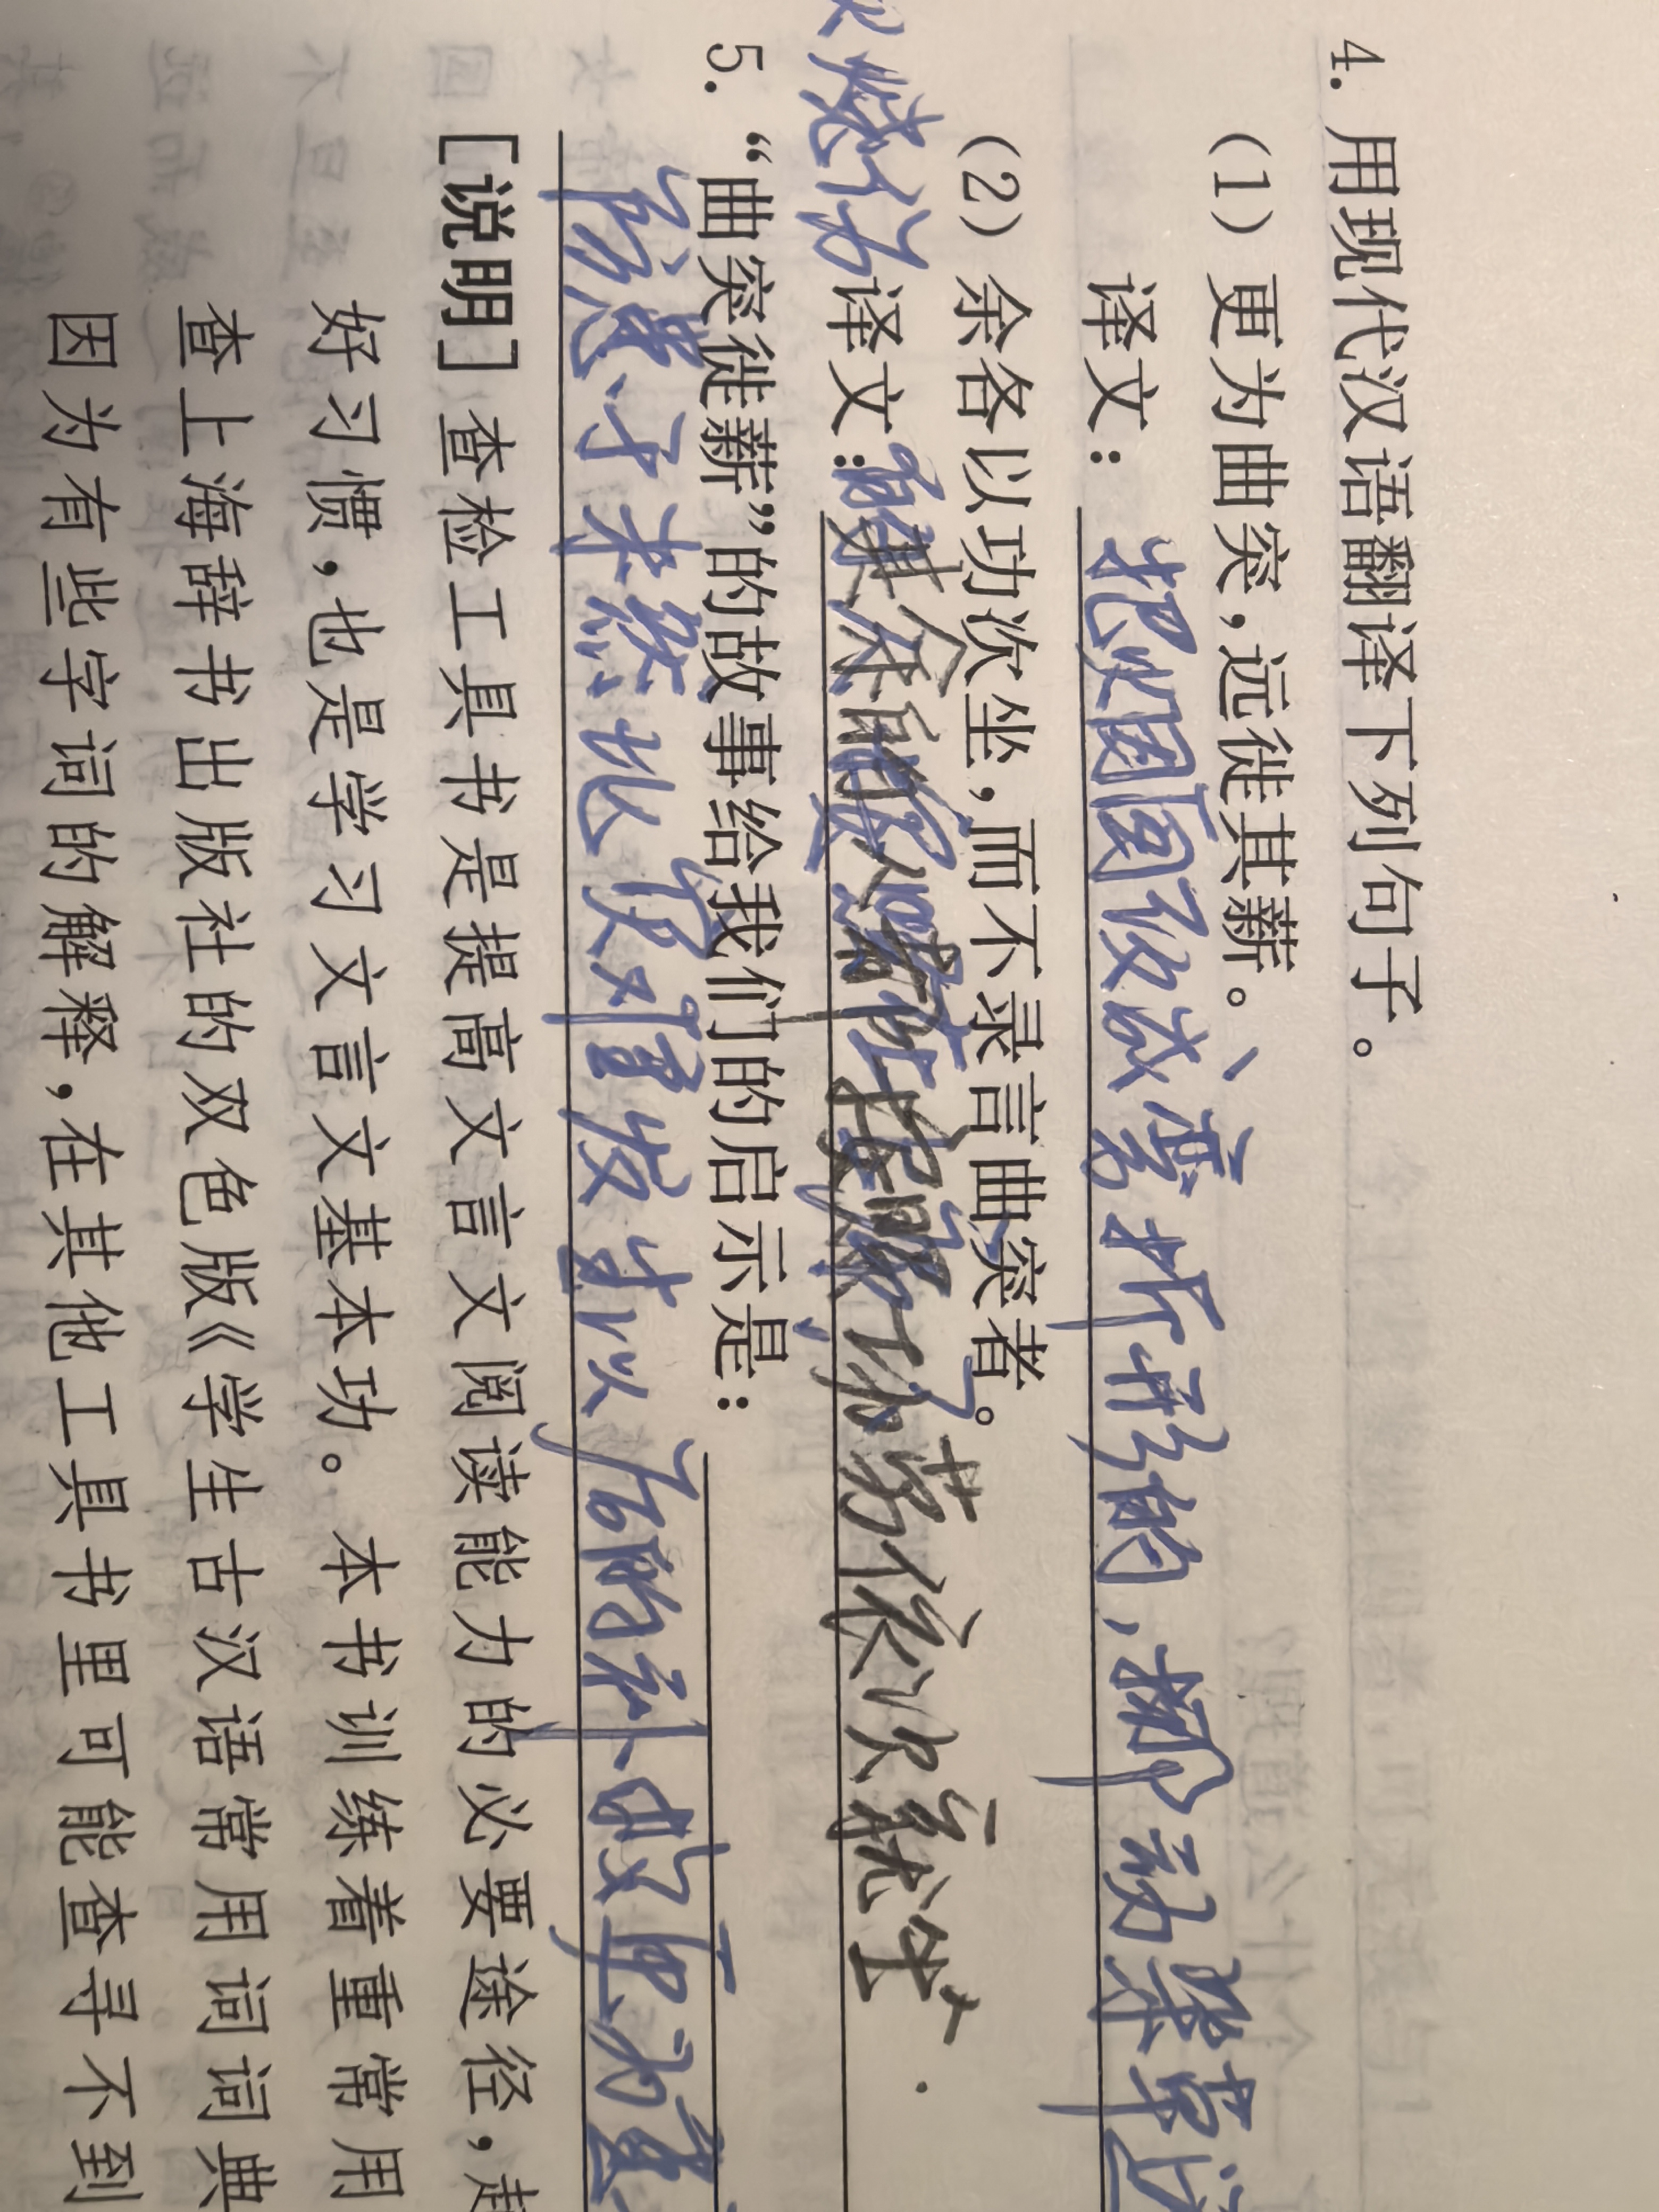 4. 用现代汉语翻译下列句子。
(1) 更为曲突，远徙其薪。
译文：把烟囱改成弯折形的，挪动柴草
(2) 余各以功次坐，而不录言曲突者。
烧伤译文：其余的人按功劳依次就坐
5. “曲突徙薪”的故事给我们的启示是：
防患于未然比灾难发生以后的补救更为重
[说明] 查检工具书是提高文言文阅读能力的必要途径，
好习惯，也是学习文言文基本功。本书训练着重常用
查上海辞书出版社的双色版《学生古汉语常用词词典
因为有些字词的解释，在其他工具书里可能查寻不到